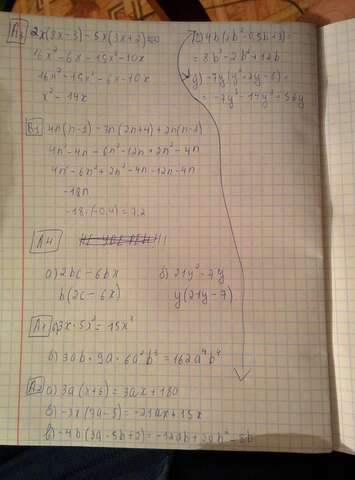 A3 2x(8x-3)-5x(3x+2)=
16x²-6x-15x²-10x
16x²-15x²-6x-10x
x²-14x
B1 4n(n-1)-3n(2n+4)+2n(n-2)
4n²-4n-6n²-12n+2n²-4n
4n²-6n²+2n²-4n-12n-4n
-18n
-18·(-0,4)=7,2
A4
а) 2bc-6bx
b(2c-6x)
б) 21y²-7y
y(21y-7)
A1 а) 3x·5x²=15x³
б) 3ab·9a·6a²b³=162a⁴b⁴
A2 а) 3a(x+6)=3ax+18a
б) -3x(7a-5)=-21ax+15x
в) -4b(3a-5b+2)=-12ab+20b²-8b
г) 4b(2b²-0,5b+3)=
=8b³-2b²+12b
д) -7y(y²+2y-8)=
=-7y³-14y²+56y